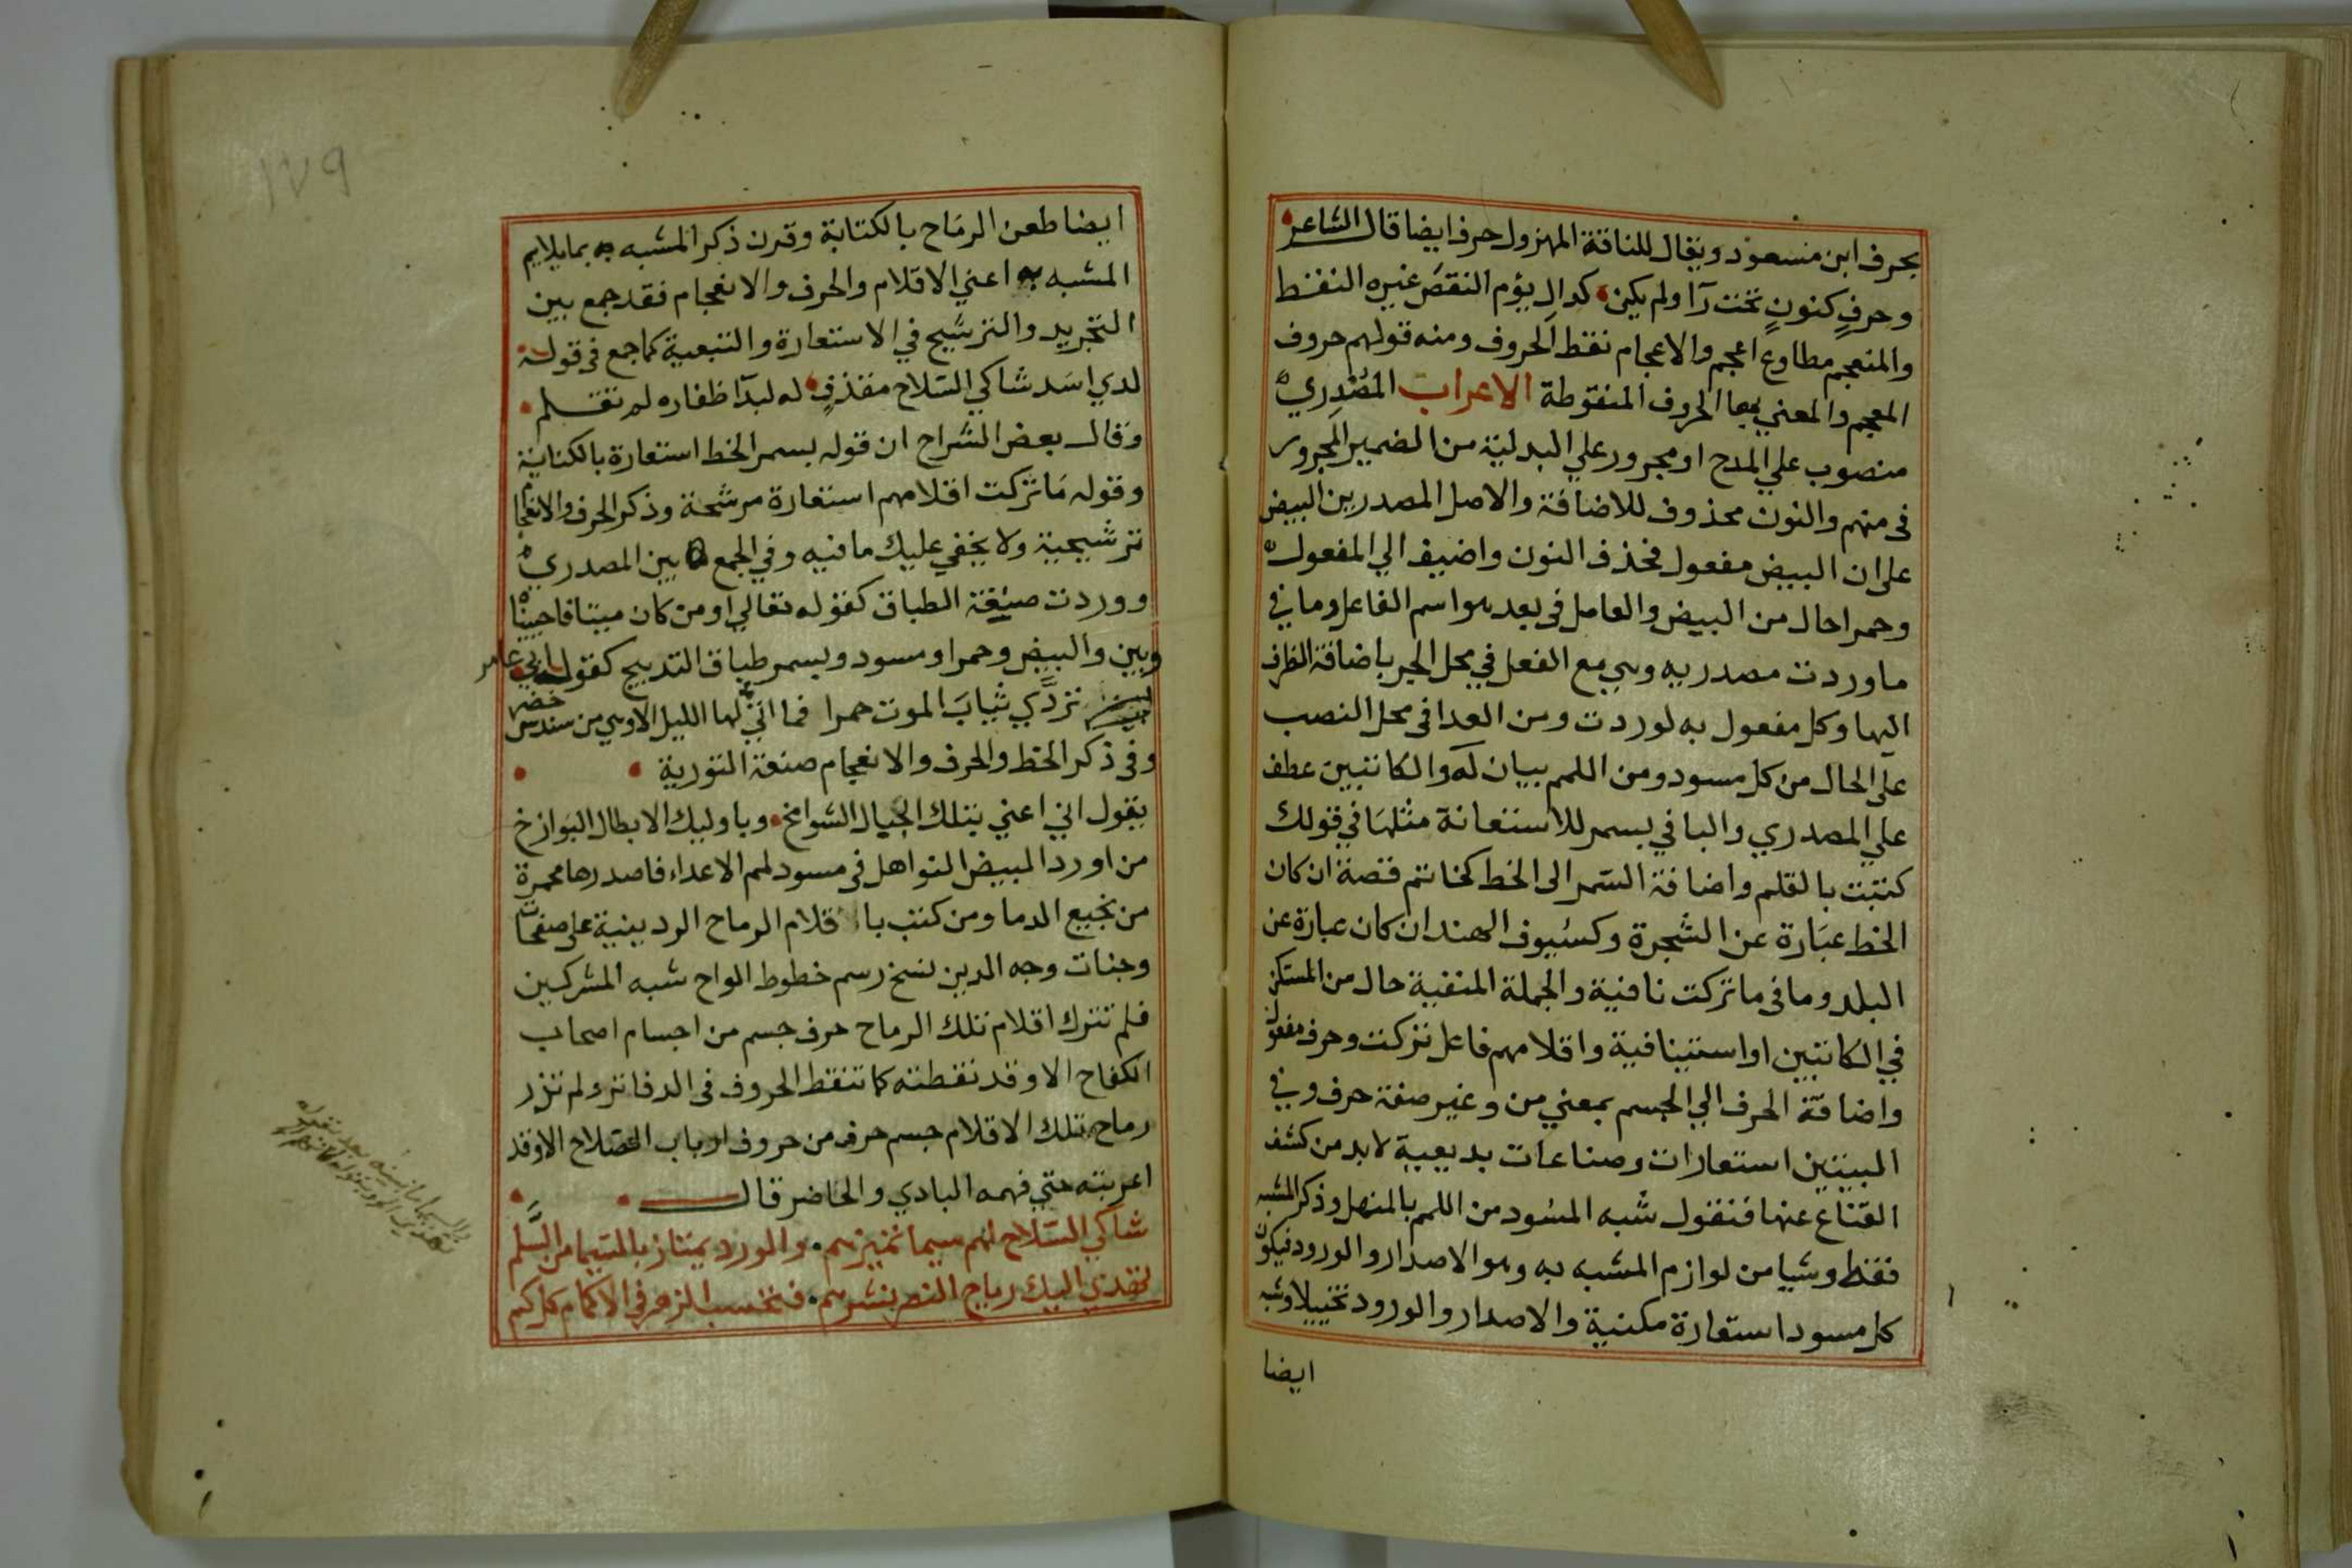 بحرف ابن مسعود ويقال للناقة المهزول حرف ايضا قال الشاعر
وحرف كنون تحت رآ ولم يكن كدال يؤم النقص غيره النقط
والمنعجم مطاوع اعجم والاعجام نقط الحروف ومنه قولهم حروف
المعجم والمعني بها الحروف المنقوطة الاعراب المصدري
منصوب علي المدح او مجرور علي البدلية من الضمير المجرور
في منهم والنون محذوف للاضافة والاصل المصدرين البيض
على ان البيض مفعول فحذف النون واضيف الي المفعول
وحمرا حال من البيض والعامل في بعد هو اسم الفاعل وما في
ما وردت مصدريه وهي مع الفعل في محل الجر باضافة الظرف
اليها وكل مفعول به لوردت ومن العدا في محل النصب
على الحال من كل مسود ومن اللمم بيان له والكاتبين عطف
علي المصدري والبا في بسمر للاستعانة مثلها في قولك
كتبت بالقلم واضافة السمر الى الخط كخاتم فضة ان كان
الخط عبارة عن الشجرة وكسيوف الهند ان كان عبارة عن
البلد وما في ما تركت نافية والجملة المنفية حال من المستكن
في الكاتبين او استينافية واقلامهم فاعل تركت وحرف مفعول
واضافة الحرف الي الجسم بمعني من وغير صفة حرف وفي
البيتين استعارات وصناعات بديعية لابد من كشف
القناع عنها فنقول شبه المسود من اللمم بالمنهل وذكر المشبه
فقط وشيا من لوازم المشبه به وهو الاصدار والورود فيكون
كل مسود استعارة مكنية والاصدار والورود تخييلا وشبه
ايضا
١٧٩
ايضا طعن الرماح بالكتابة وقرن ذكر المشبه به بما يلايم
المشبه به اعني الاقلام والحرف والانعجام فقد جمع بين
التجريد والترشيح في الاستعارة والتبعية كما جمع في قوله
لدي اسد شاكي السلاح مقذف له لبد اظفاره لم تقلم
وقال بعض الشراح ان قوله بسمر الخط استعارة بالكناية
وقوله ما تركت اقلامهم استعارة مرشحة وذكر الحرف والانعجام
ترشيحية ولا يخفي عليك ما فيه وفي الجمع بين المصدري
ووردت صيغة الطباق كقوله تعالي او من كان ميتا فاحييناه
وبين والبيض وحمرا ومسود وبسمر طباق التدبيج كقول ابي عامر
تردي ثياب الموت حمرا فما اتي لها الليل الا وهي من سندس خضر
وفي ذكر الخط والحرف والانعجام صنعة التورية
يقول اني اعني بتلك الجبال الشوامخ وباوليك الابطال البوازخ
من اورد المبيض النواهل في مسود لمم الاعداء فاصدرها محمرة
من نجيع الدما ومن كتب باقلام الرماح الردينية على صفحات
وجنات وجه الدين نسخ رسم خطوط الواح شبه المشركين
فلم تترك اقلام تلك الرماح حرف جسم من اجسام اصحاب
الكفاح الا وقد نقطته كما تنقط الحروف في الدفاتر ولم تزر
رماح تلك الاقلام جسم حرف من حروف ارباب الصلاح الا وقد
اعربته حتي فهمه البادي والحاضر قال
شاكي السلاح لهم سيما تميزهم والورد يمتاز بالسيما من السلم
تهدي اليك رياح النصر نشرهم فتحسب الزهر في الاكمام كل كم